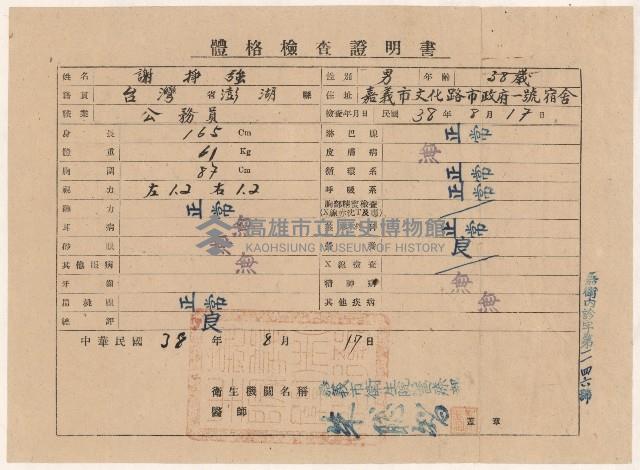 體格檢查證明書
姓名 謝掙強 性別 男 年齡 38歲
籍貫 台灣省澎湖縣 住址 嘉義市文化路市政府一號宿舍
職業 公務員 檢查年月日 民國38年8月17日
身長 165 Cm 淋巴腺 正常
體重 61 Kg 皮膚病 海
胸圍 87 Cm 循環系 正常
視力 左1.2 右1.2 呼吸系 正常
聽力 正常 胸部精密檢查
耳病 海 正常
砂眼 海 良
其他眼病 海 X線檢查
牙齒 精神病 海
扁桃腺 正常 其他疾病 海
總評 良
中華民國38年8月17日
衛生機關名稱 嘉義市衛生院
醫師 蓋章
嘉衛內診字第二一四六號
高雄市立歷史博物館
KAOHSIUNG MUSEUM OF HISTORY